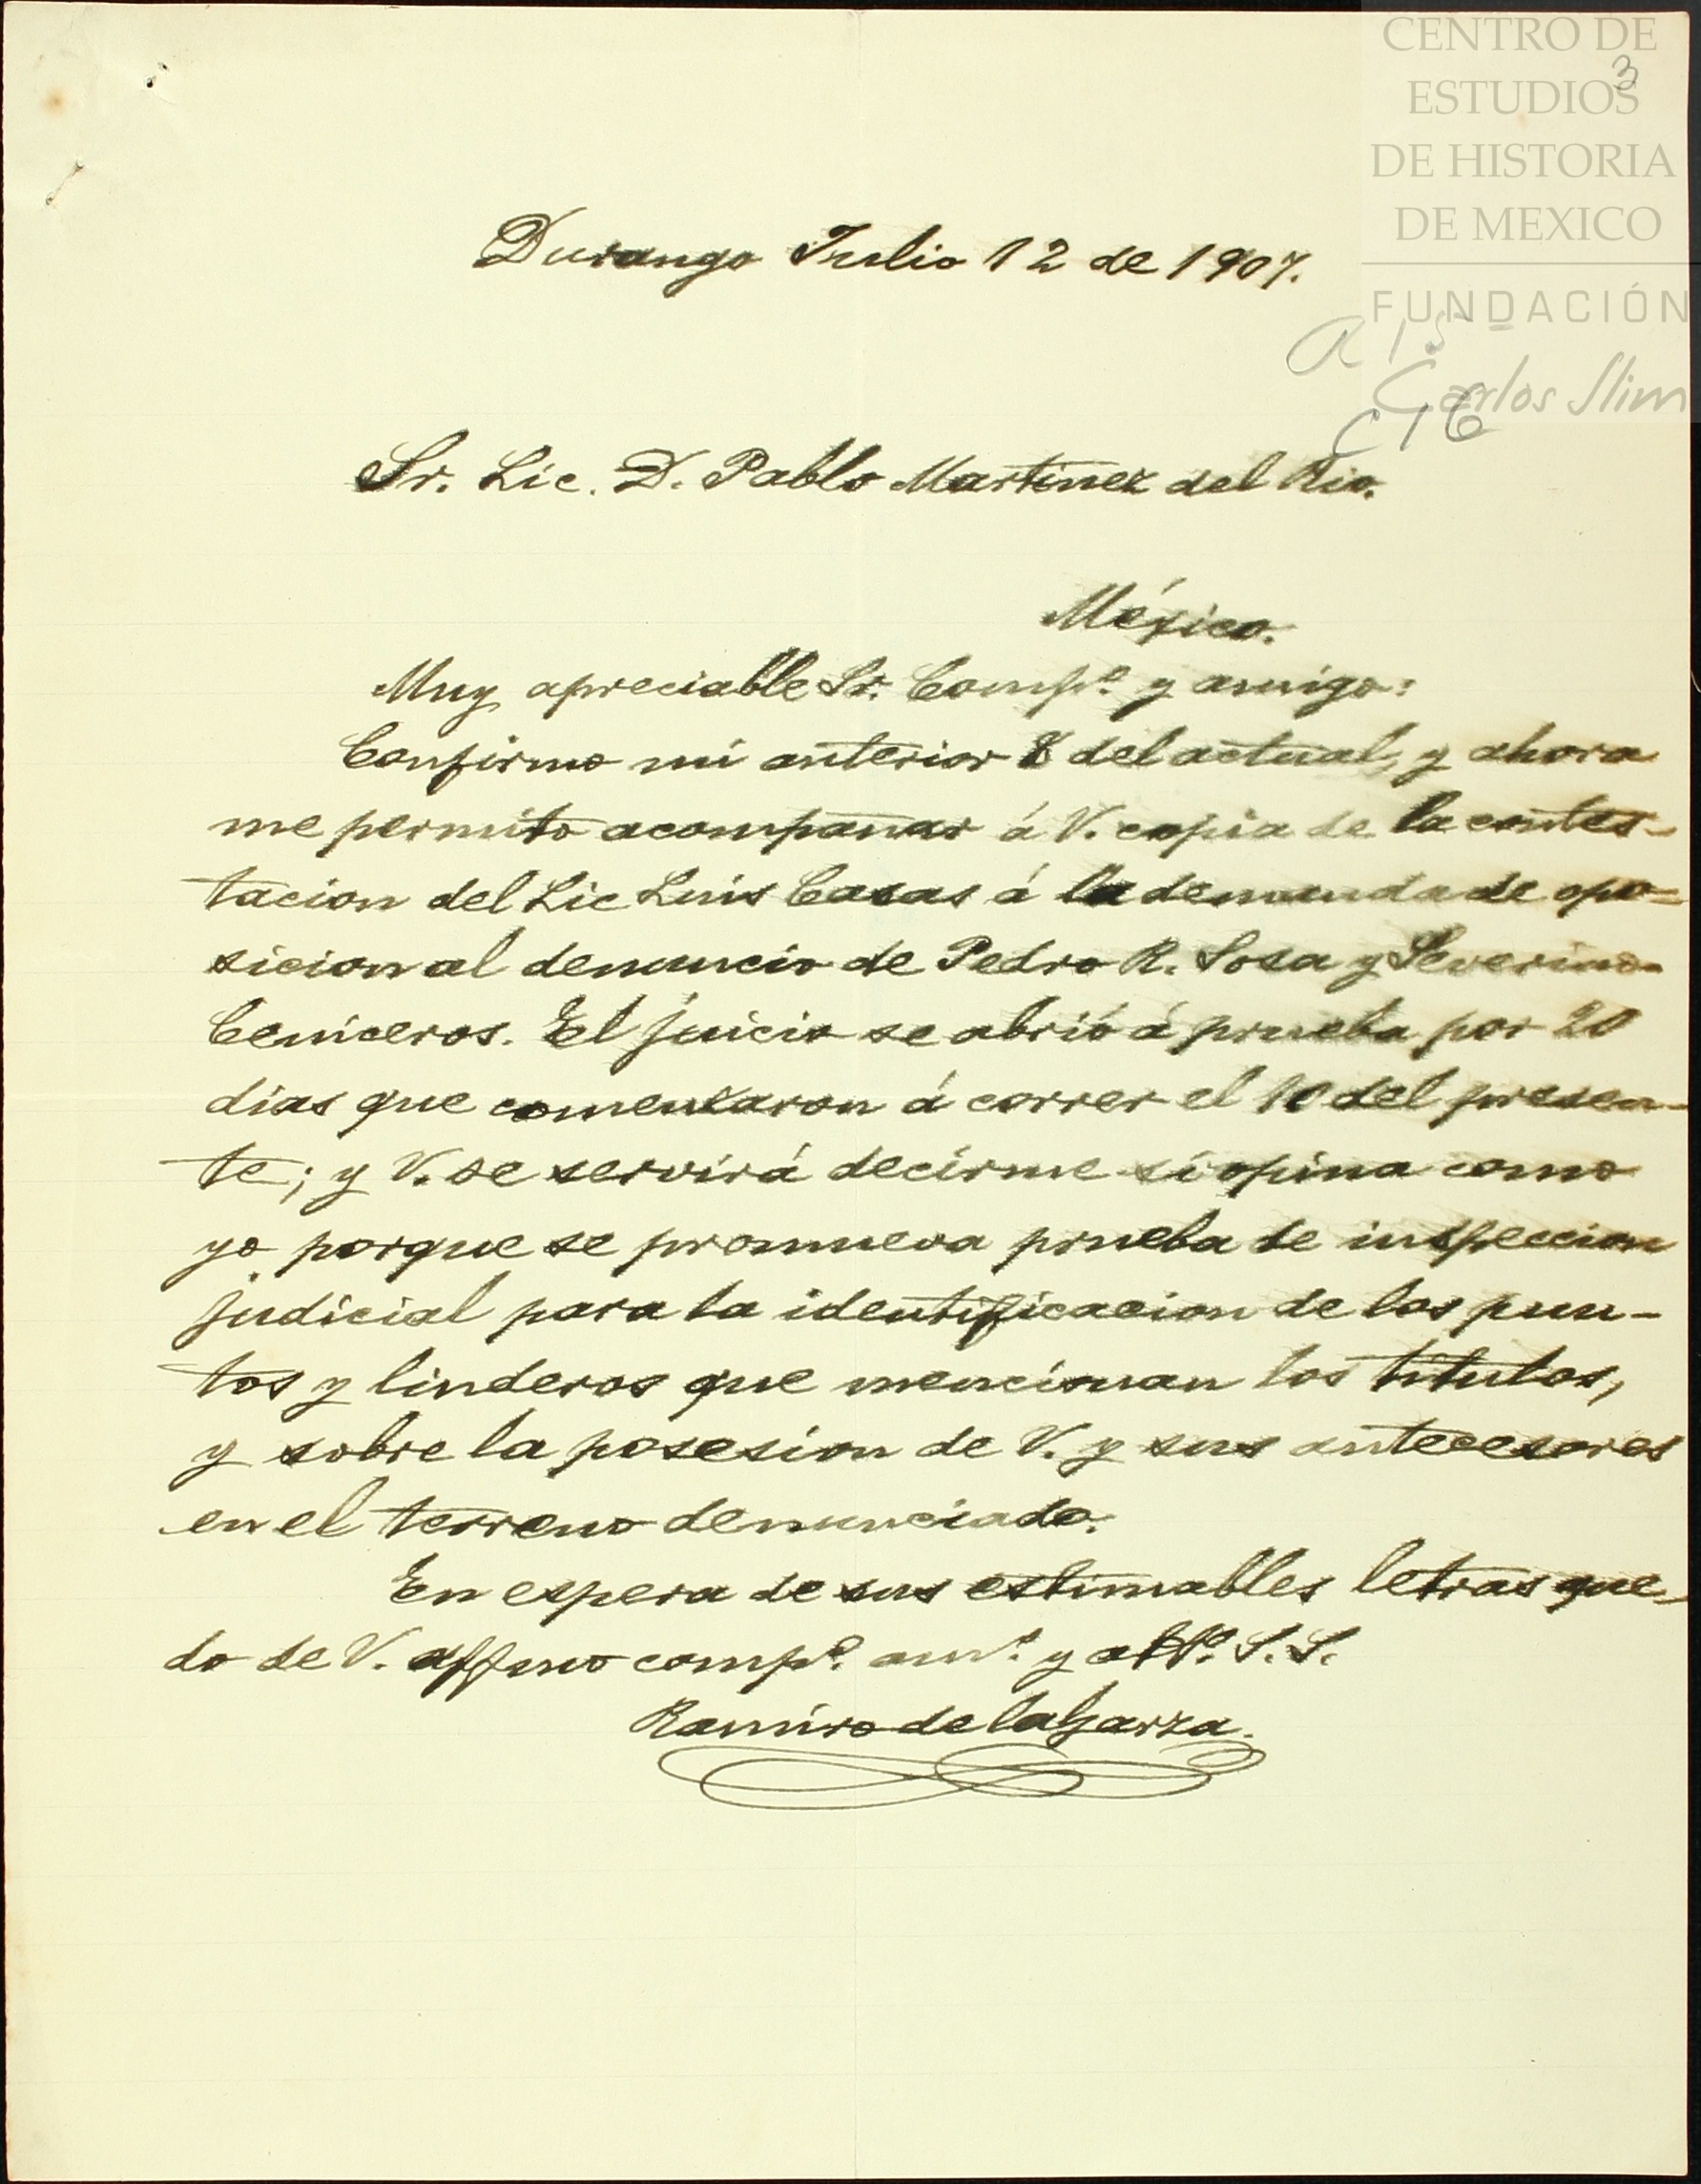 CENTRO DE
ESTUDIOS
DE HISTORIA
DE MEXICO
FUNDACIÓN
Carlos Slim
3
Durango Julio 12 de 1907.
C 16
Sr. Lic. D. Pablo Martinez del Rio.
México.
Muy apreciable Sr. Comp.º y amigo:
Confirmo mi anterior 8 del actual, y ahora
me permito acompañar á V. copia de la contes-
tacion del Lic Luis Casas á la demanda de opo-
sicion al denuncio de Pedro R. Sosa y Severino
Ceniceros. El juicio se abrió á prueba por 20
dias que comenzaron á correr el 10 del presen-
te; y V. se servirá decirme si opina como
yo porque se promueva prueba de inspeccion
judicial para la identificacion de los pun-
tos y linderos que mencionan los titulos,
y sobre la posesion de V. y sus antecesores
en el terreno denunciado.
En espera de sus estimables letras que-
do de V. affmo comp.º am.º y att.º S. S.
Ramiro de la Garza.